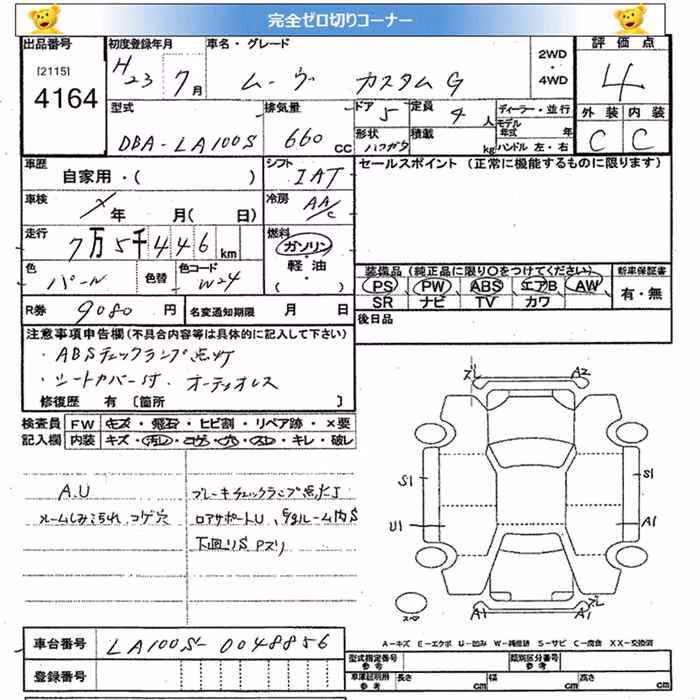 完全ゼロ切りコーナー
出品番号 [2115] 4164
初度登録年月 H23 7月
車名・グレード ムーヴ カスタムG
2WD・4WD
評価点 4
型式 DBA-LA100S
排気量 660 CC
ドア 5
形状 ハッチバック
定員 4人
積載 kg
ディーラー・並行
モデル年式 年
ハンドル 左・右
外装 C
内装 C
車歴 自家用・( )
シフト IAT
セールスポイント (正常に機能するものに限ります)
車検 年 月( 日)
冷房 AA/C
走行 7万5千446km
燃料 ガソリン・軽油・( )
色 パール
色替
色コード W24
装備品 (純正品に限り〇をつけてください)
PS PW ABS エアB AW
SR ナビ TV カワ
新車保証書 有・無
R券 9080円
名変通知期限 月 日
後日品
注意事項申告欄(不具合内容等は具体的に記入して下さい)
・ABSチェックランプ点灯
・シートカバー付・オーディオレス
修復歴 有 [箇所 ]
検査員記入欄
FW キズ・飛石・ヒビ割・リペア跡・×要
内装 キズ・汚レ・コゲ・穴・スレ・キレ・破レ
A.U
ルームしみ汚れ コゲ穴
ブレーキチェックランプ点灯
ロアサポートU、
下回りS Pズリ
ズレ A2
S1 S1
U1 A1
ズレ
スペア A1 A1
A-キズ E-エクボ U-凹み W-補修跡 S-サビ C-腐食 XX-交換済
車台番号 LA100S-0048856
登録番号
型式指定番号 参考
類別区分番号 参考
車庫証明用 参考 長さ cm 幅 cm 高さ cm